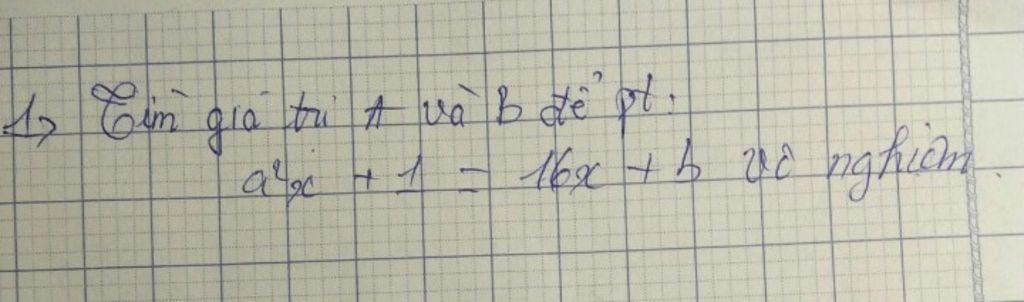 1, Tìm giá trị A và B để pt:
a²x + 1 = 16x + b vô nghiệm.